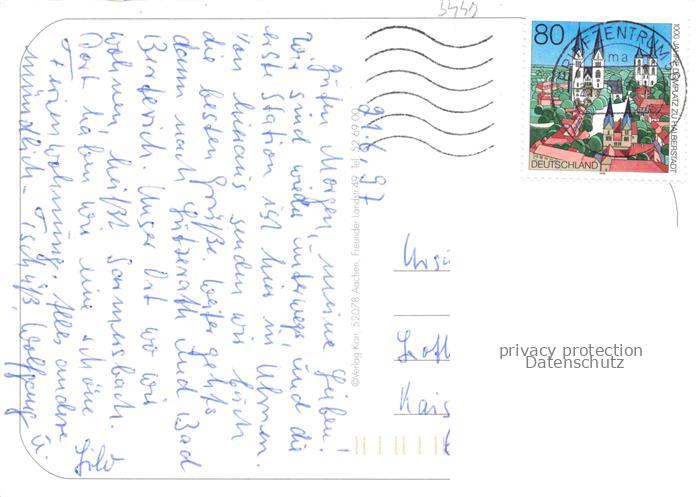 9.6.97
Guten Morgen, meine Lieben!
Wir sind wieder unterwegs und die
erste Station ist hier in Ulmen.
Von hieraus senden wir Euch
die besten Grüße. Weiter gehts
dann nach Lützerath und Bad
Bertrich. Unser Ort wo wir
wohnen heißt
Dort haben wir eine schöne
Ferienwohnung. Alles andere
mündlich - Tschüß, Wolfgang u.
©Verlag Kort 52078 Aachen, Freunder Landstr. 49 Tel. 52 69 00
80
DEUTSCHLAND
1000 JAHRE DOMPLATZ ZU HALBERSTADT
BRIEFZENTRUM
ma
privacy protection
Datenschutz